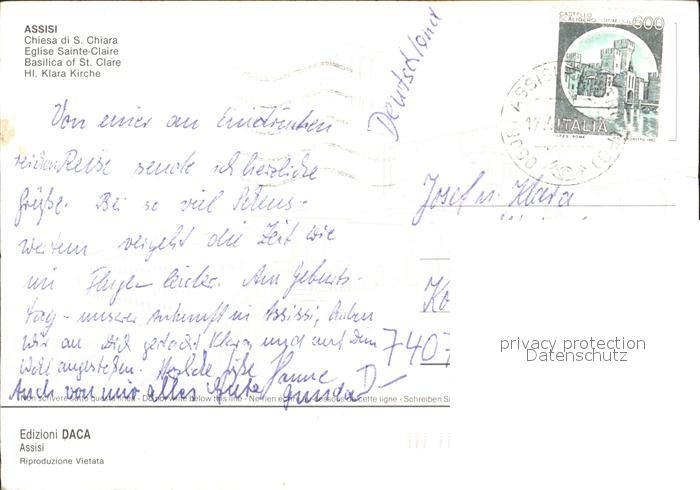 ASSISI
Chiesa di S. Chiara
Eglise Sainte-Claire
Basilica of St. Clare
Hl. Klara Kirche
CASTELLO
SCALIGERO
600
ITALIA
Deutschland
Von einer an Eindrücken
reichen Reise sende ich herzliche
Grüße. Bei so viel Sehens-
wertem vergeht die Zeit wie
im Fluge leider. Am Geburts-
tag - unserer Ankunft in Assisi, haben
wir an Dich gedacht Klara, und auf Dein
Wohl angestoßen. Herzliche Grüße Hanne
Auch von mir alles Gute Gunda
Josef u. Klara
Ko
D-
740
privacy protection
Datenschutz
Non scrivere sotto questa linea - Do not write below this line - Ne rien écrire au dessous de cette ligne - Schreiben Si
Edizioni DACA
Assisi
Riproduzione Vietata